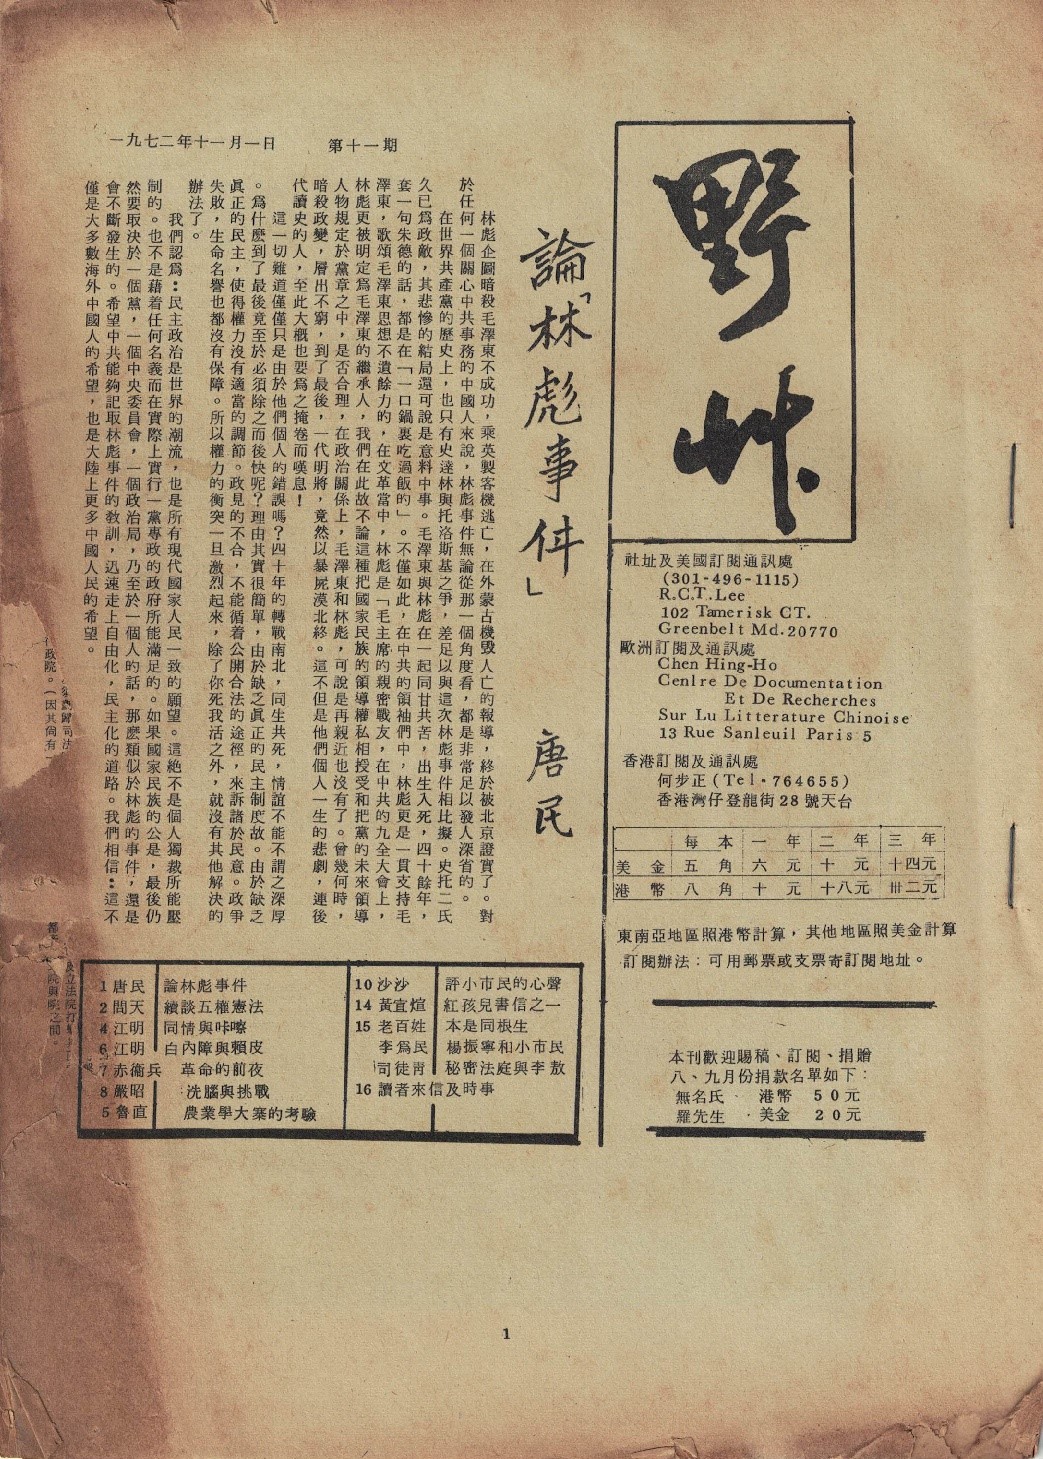 一九七二年十一月一日 第十一期
野草
社址及美國訂閱通訊處
(301-496-1115)
R.C.T. Lee
102 Tamerisk CT.
Greenbelt Md. 20770
歐洲訂閱及通訊處
Chen Hing-Ho
Cenlre De Documentation
Et De Recherches
Sur Lu Litterature Chinoise
13 Rue Sanleuil Paris 5
香港訂閱及通訊處
何步正(Tel·764655)
香港灣仔登龍街28號天台
每本 一年 二年 三年
美金 五角 六元 十元 十四元
港幣 八角 十元 十八元 卅二元
東南亞地區照港幣計算，其他地區照美金計算
訂閱辦法：可用郵票或支票寄訂閱地址。
本刊歡迎賜稿、訂閱、捐贈
八、九月份捐款名單如下：
無名氏 港幣 50元
羅先生 美金 20元
論「林彪事件」
唐民
林彪企圖暗殺毛澤東不成功，乘英製客機逃亡，在外蒙古機毀人亡的報導，終於被北京證實了。對
於任何一個關心中共事務的中國人來說，林彪事件無論從那一個角度看，都是非常足以發人深省的。
在世界共產黨的歷史上，也只有史達林與托洛斯基之爭，差足以與這次林彪事件相比擬。史托二氏
久已爲政敵，其悲慘的結局還可說是意料中事。毛澤東與林彪在一起同甘共苦，出生入死，四十餘年，
套一句朱德的話，都是在「一口鍋裏吃過飯的」。不僅如此，在中共的領袖們中，林彪更是一貫支持毛
澤東，歌頌毛澤東思想不遺餘力的，在文革當中，林彪是「毛主席的親密戰友，在中共的九全大會上，
林彪更被明定爲毛澤東的繼承人，我們在此故不論這種把國家民族的領導權私相授受和把黨的未來領導
人物規定於黨章之中，是否合理，在政治關係上，毛澤東和林彪，可說是再親近也沒有了。曾幾何時，
暗殺政變，層出不窮，到了最後，一代明將，竟然以暴屍漠北終。這不但是他們個人一生的悲劇，連後
代讀史的人，至此大概也要爲之掩卷而嘆息！
這一切難道僅僅只是由於他們個人的錯誤嗎？四十年的轉戰南北，同生共死，情誼不能不謂之深厚
。爲什麽到了最後竟至於必須除之而後快呢？理由其實很簡單，由於缺乏眞正的民主制度故。由於缺乏
眞正的民主，使得權力沒有適當的調節。政見的不合，不能循着公開合法的途徑，來訴諸於民意。政爭
失敗，生命名譽也都沒有保障。所以權力的衝突一旦激烈起來，除了你死我活之外，就沒有其他解決的
辦法了。
我們認爲：民主政治是世界的潮流，也是所有現代國家人民一致的願望。這絕不是個人獨裁所能壓
制的。也不是藉着任何名義而在實際上實行一黨專政的政府所能滿足的。如果國家民族的公是，最後仍
然要取決於一個黨，一個中央委員會，一個政治局，乃至於一個人的話，那麽類似於林彪的事件，還是
會不斷發生的。希望中共能夠記取林彪事件的教訓，迅速走上自由化，民主化的道路。我們相信：這不
僅是大多數海外中國人的希望，也是大陸上更多中國人民的希望。
政院。（因其尙有
1 唐民 論林彪事件
2 閻天 續談五權憲法
4 江明 同情與咔嚓
6 江明 白內障與賴皮
7 赤衞兵 革命的前夜
8 嚴昭 洗腦與挑戰
5 魯直 農業學大寨的考驗
10 沙沙 評小市民的心聲
14 黃宜煊 紅孩兒書信之一
15 老百姓 本是同根生
李爲民 楊振寧和小市民
司徒靑 秘密法庭與李敖
16 讀者來信及時事
1